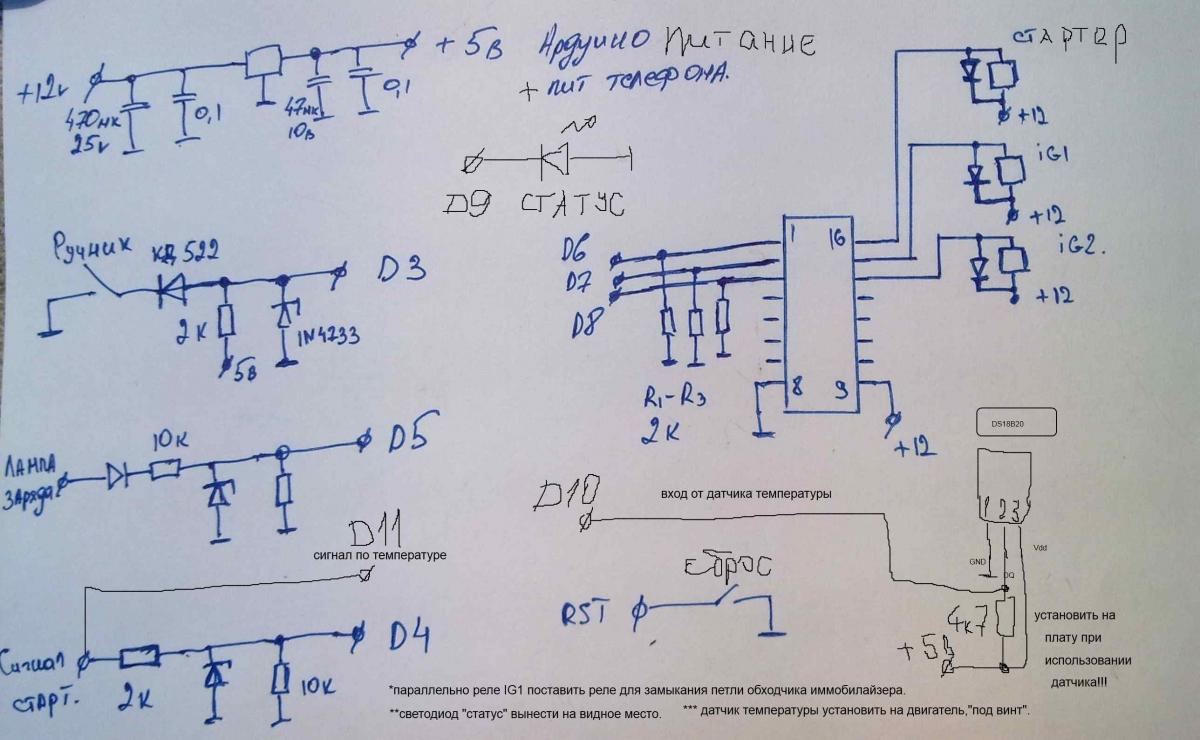 +12v
470мк
25v
0,1
47мк
10в
0,1
+5в Ардуино питание
+ пит телефона.
D9 СТАТУС
СТАРТЕР
+12
iG1
+12
iG2.
+12
Ручник
КД522
D3
2к
1N4733
5в
D6
D7
D8
1
16
8
9
R1-R3
2к
+12
Лампа
заряда
10к
D5
D11
сигнал по температуре
Сигнал
старт.
2к
10к
D4
D10
вход от датчика температуры
RST
сброс
DS18B20
1 2 3
GND
DQ
Vdd
4к7
+5в
установить на
плату при
использовании
датчика!!!
*параллельно реле IG1 поставить реле для замыкания петли обходчика иммобилайзера.
**светодиод "статус" вынести на видное место.
*** датчик температуры установить на двигатель,"под винт".